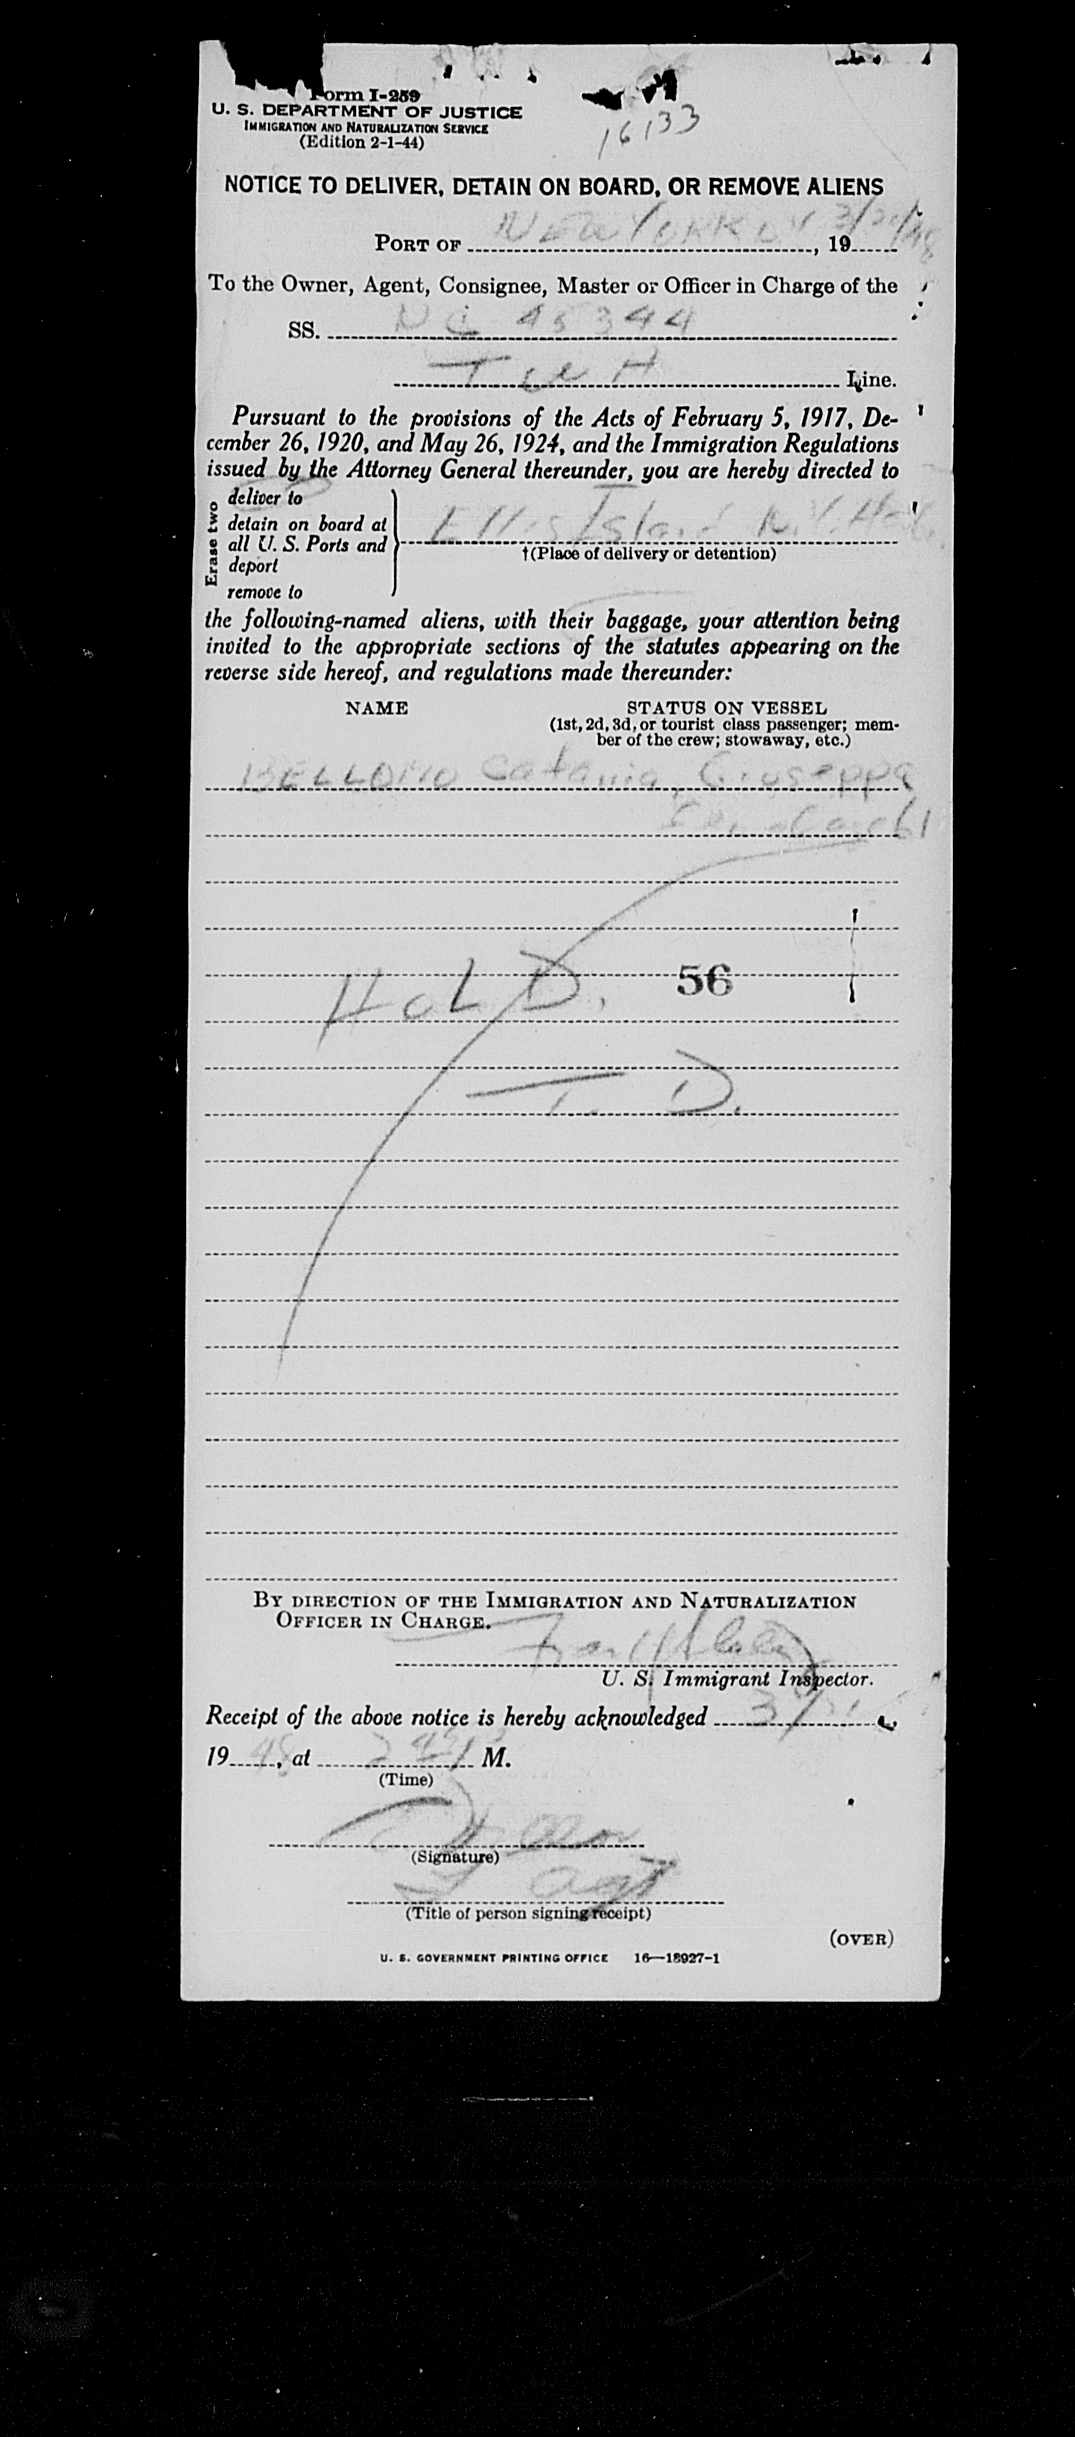 Form I-259
U. S. DEPARTMENT OF JUSTICE
IMMIGRATION AND NATURALIZATION SERVICE
(Edition 2-1-44)
16133
NOTICE TO DELIVER, DETAIN ON BOARD, OR REMOVE ALIENS
PORT OF NEW YORK N Y, 19 48
To the Owner, Agent, Consignee, Master or Officer in Charge of the
SS. NC 45344
TWA Line.
Pursuant to the provisions of the Acts of February 5, 1917, De-
cember 26, 1920, and May 26, 1924, and the Immigration Regulations
issued by the Attorney General thereunder, you are hereby directed to
Erase two
deliver to
detain on board at
all U. S. Ports and
deport
remove to
Ellis Island N.Y.
†(Place of delivery or detention)
the following-named aliens, with their baggage, your attention being
invited to the appropriate sections of the statutes appearing on the
reverse side hereof, and regulations made thereunder:
NAME STATUS ON VESSEL
(1st, 2d, 3d, or tourist class passenger; mem-
ber of the crew; stowaway, etc.)
BELLOMO Catania, Giuseppa
HOLD. 56
T. D.
BY DIRECTION OF THE IMMIGRATION AND NATURALIZATION
OFFICER IN CHARGE.
U. S. Immigrant Inspector.
Receipt of the above notice is hereby acknowledged
19 48, at M.
(Time)
(Signature)
Agt
(Title of person signing receipt)
(OVER)
U. S. GOVERNMENT PRINTING OFFICE 16—18927-1